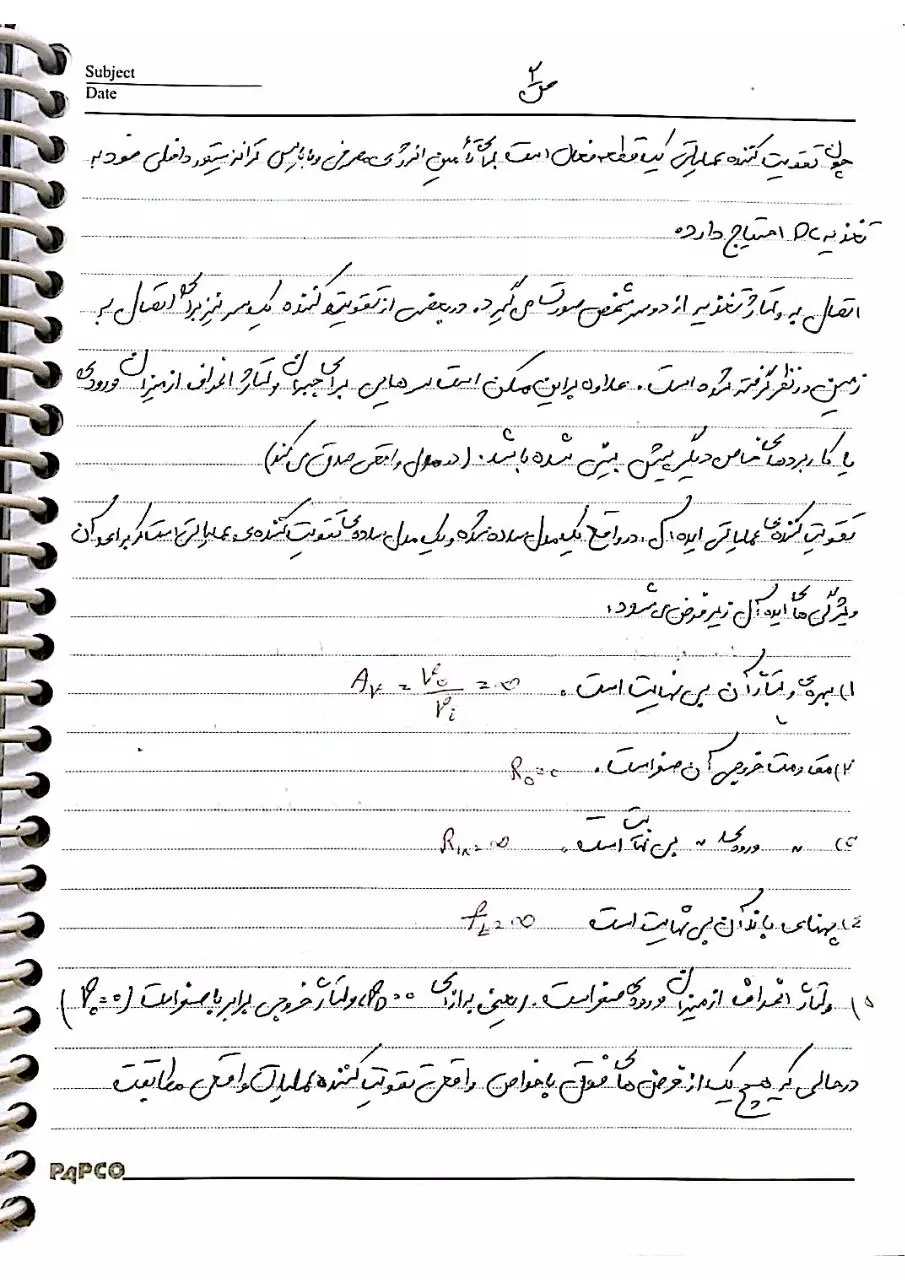 Subject
Date
ص ۲
چون تقویت کننده عملیاتی یک قطعه فعال است برای تأمین انرژی مصرفی و بایاس ترانزیستور داخلی خود به
تغذیه DC احتیاج دارد.
اتصال به ولتاژ تغذیه از دو سر مشخص صورت می گیرد. در بعضی از تقویت کننده یک سر نیز برای اتصال به
زمین در نظر گرفته شده است. علاوه بر این ممکن است سرهایی برای جبران ولتاژ انحراف از میزان ورودی
یا کاربردهای خاص دیگر پیش بینی شده باشد. (در مدل واقعی صدق می کند)
تقویت کننده ی عملیاتی ایده آل، در واقع یک مدل ساده شده و یک مدل ساده ی تقویت کننده ی عملیاتی است که برای آن
ویژگی های ایده آل زیر فرض می شود:
۱) بهره ی ولتاژ آن بی نهایت است. Av = Vo/Vi = ∞
۲) مقاومت خروجی آن صفر است. Ro = 0
۳) " ورودی " بی نهایت است. Rin = ∞
۴) پهنای باند آن بی نهایت است = ∞
۵) ولتاژ انحراف از میزان ورودی صفر است. (یعنی به ازای VD = 0، ولتاژ خروجی برابر با صفر است (Vo = 0)
در حالی که هیچ یک از فرض های فوق با خواص واقعی تقویت کننده عملیاتی واقعی مطابقت
PAPCO